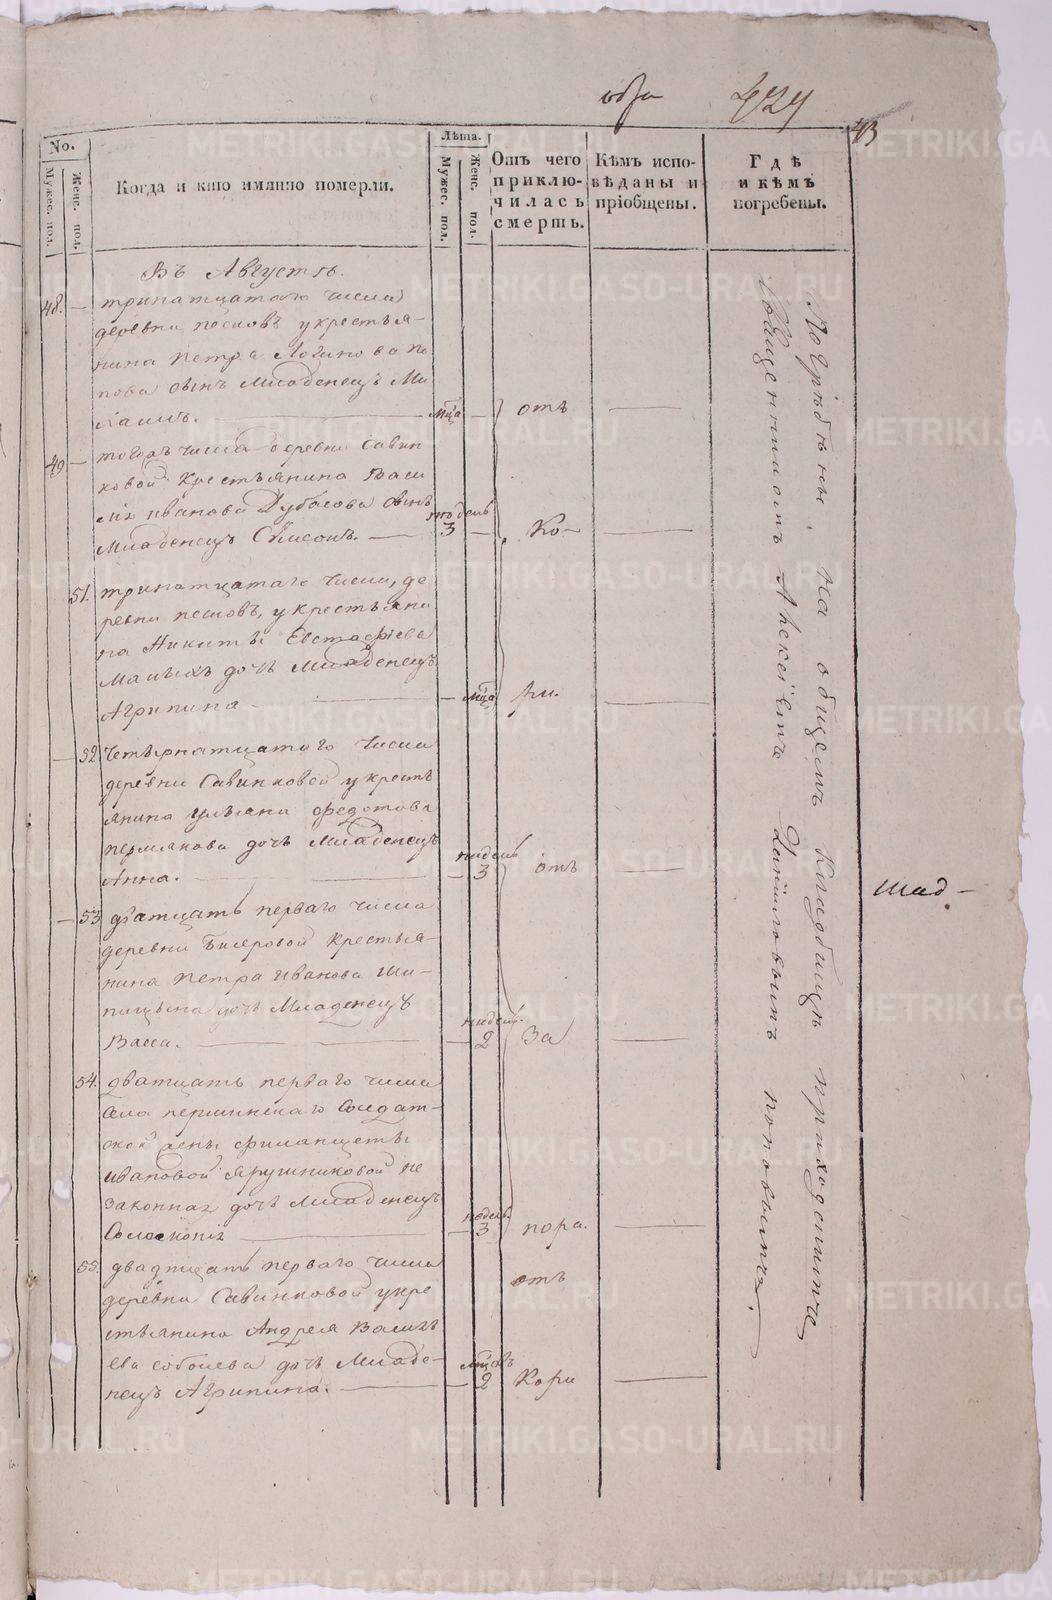 424
43
No.
Мужес. пол.
Женс. пол.
Когда и кто имянно померли.
Лѣта.
Мужес. пол.
Женс. пол.
Отъ чего приключилась смерть.
Кѣмъ исповѣданы и пріобщены.
Гдѣ и кѣмъ погребены.
Въ Августѣ.
48. тринатцатого числа
деревни песковъ у крестья-
нина Петра Логинова по
пова сынъ младенецъ Ми
хаилъ. мца отъ
49 того жъ числа деревни Савин
ковой Крестьянина Васи
лія иванова Дубасова сынъ
младенецъ Симеонъ. недель 3 Ко-
51. тринатцатаго числа, де
ревни песковъ, у крестьяни
на Никиты Евстафіева
малыхъ дочь младенецъ
Агрипина мца ри.
52 Четырнатцатого числа
деревни Савинковой у кресть
янина ульяна федотова
пермякова дочь младенецъ
Анна. нидель 3 отъ
53 дватцать перваго числа
деревни Бисеровой крестья-
нина Петра Иванова Ши-
пицына дочь младенецъ
Васса. нидель 2 За
54. дватцать перваго числа
села першинскаго Солдат-
ской жены
ивановой Ярушниковой не
законная дочь младенецъ
Соломонія недель 3 пора.
55. двадцать перваго числа отъ
деревни Савинковой у кре
стьянина Андрея Василь
ева соболева дочь младе-
нецъ Агрипина. мцовъ 2 Кори
Погрѣбены на общемъ кладбищѣ приходскимъ
Священникомъ Алексіемъ Данииловымъ поповымъ.
шад-
METRIKI.GASO-URAL.RU